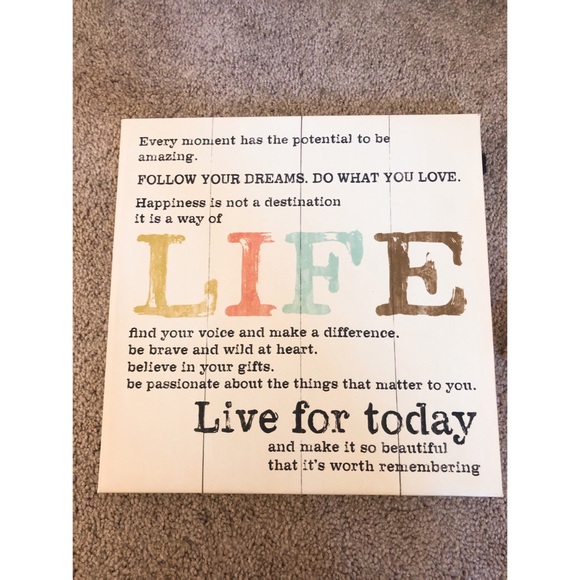 Every moment has the potential to be
amazing.
FOLLOW YOUR DREAMS. DO WHAT YOU LOVE.
Happiness is not a destination
it is a way of
LIFE
find your voice and make a difference.
be brave and wild at heart.
believe in your gifts.
be passionate about the things that matter to you.
Live for today
and make it so beautiful
that it's worth remembering